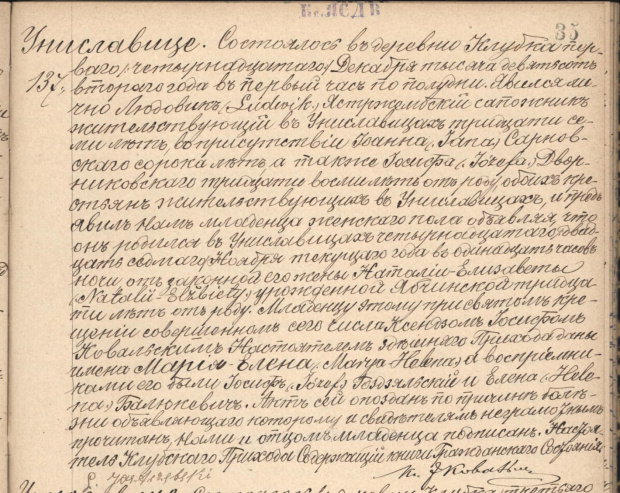 35
Униславице. Состоялось въ деревнѣ Клубка пер-
137. ваго /четырнадцатаго/ Декабря тысяча девятьсотъ
втораго года въ первый часъ по полудни. Явился ли-
чно Людовикъ /Ludwik/ Ястржембскій сапожникъ
жительствующій въ Униславицахъ тридцати се-
ми лѣтъ, въ присутствіи Іоанна /Jana/ Сарнов-
скаго сорока лѣтъ, а также Іосифа /Józefa/ Двор-
никовскаго тридцати восми лѣтъ отъ роду, обоихъ кре-
стьянъ жительствующихъ въ Униславицахъ, и предъ-
явилъ намъ младенца женскаго пола объявляя, что
онъ родился въ Униславицахъ четырнадцатаго /двад-
цать седьмаго/ Ноября текущаго года въ одинадцать часовъ
ночи отъ законной его жены Наталіи-Елизаветы
/Natalii Elżbiety/ урожденной тридца-
ти лѣтъ отъ роду. Младенцу этому при святомъ кре-
щеніи совершенномъ сего числа Ксендзомъ Іосифомъ
Ковальскимъ Настоятелемъ здѣшняго Прихода даны
имена Марія-Елена /Marya Helena/ а воспріемни-
ками его были Іосифъ /Józef/ и Елена /Hele-
na/ Балюкевичъ. Актъ сей опозданъ по причинѣ болѣ-
зни объявляющаго которому и свидѣтелямъ неграмотнымъ
прочитанъ, нами и отцомъ младенца подписанъ. Настоя-
тель Клубскаго Прихода Содержащій книги Гражданскаго Состоянія